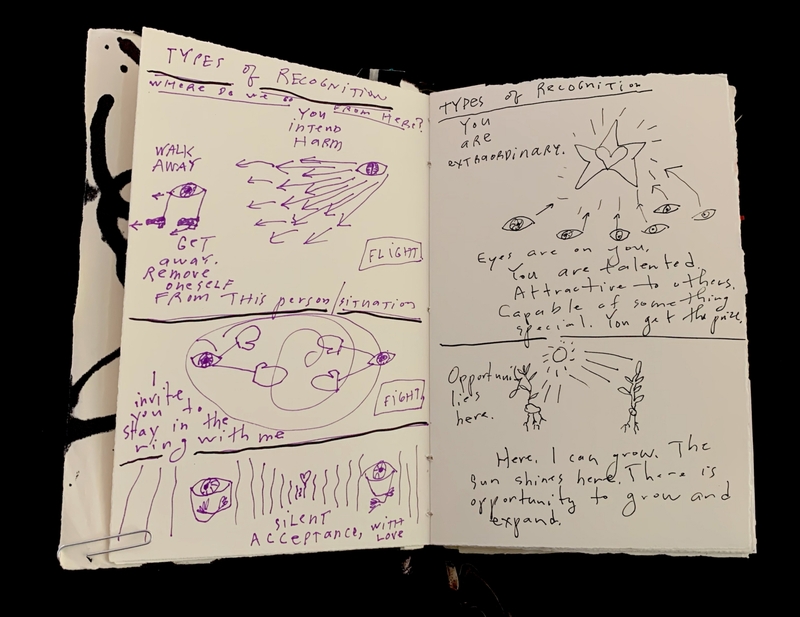 TYPES of RECOGNITION
WHERE DO WE GO FROM HERE?
YOU
intEND
HARM
WALK
AWAY
GET
away.
Remove
oneself
FROM THIS person/situation
FLIGHT
I
invite
you to
stay in the
ring with me
FIGHT
SILENT
ACCEPTANCE, WITH
LOVE
TYPES of RECOGNITION
YOU
ARE
EXTRAORDINARY.
Eyes are on you.
You are talented.
Attractive to others.
Capable of something
special. You get the prize.
Opportunity
lies
here.
Here, I can grow. The
sun shines here. There is
opportunity to grow and
expand.